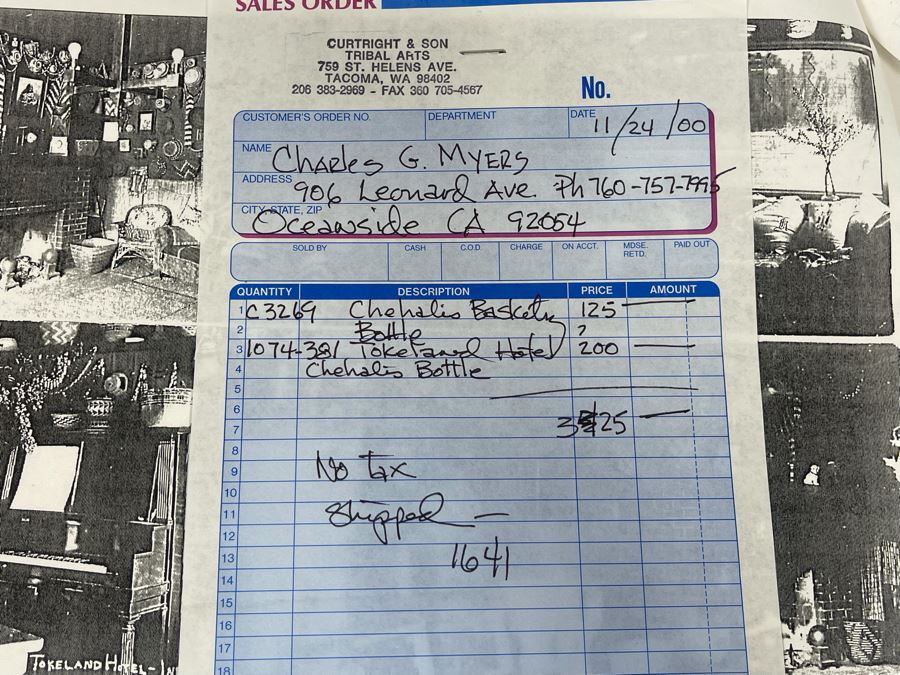 SALES ORDER
CURTRIGHT & SON
TRIBAL ARTS
759 ST. HELENS AVE.
TACOMA, WA 98402
206 383-2969 - FAX 360 705-4567
No.
CUSTOMER'S ORDER NO. DEPARTMENT DATE 11/24/00
NAME Charles G. Myers
ADDRESS 906 Leonard Ave. Ph 760-757-7995
CITY, STATE, ZIP Oceanside CA 92054
SOLD BY CASH C.O.D. CHARGE ON ACCT. MDSE. RETD. PAID OUT
QUANTITY DESCRIPTION PRICE AMOUNT
1 C3269 Chehalis Basketry 125 —
2 Bottle ?
3 1074-381 Tokeland Hotel 200 —
4 Chehalis Bottle
5
6
7 325 —
8
9 No Tax
10
11 Shipped —
12
13 1641
14
15
16
17
18
TOKELAND HOTEL-